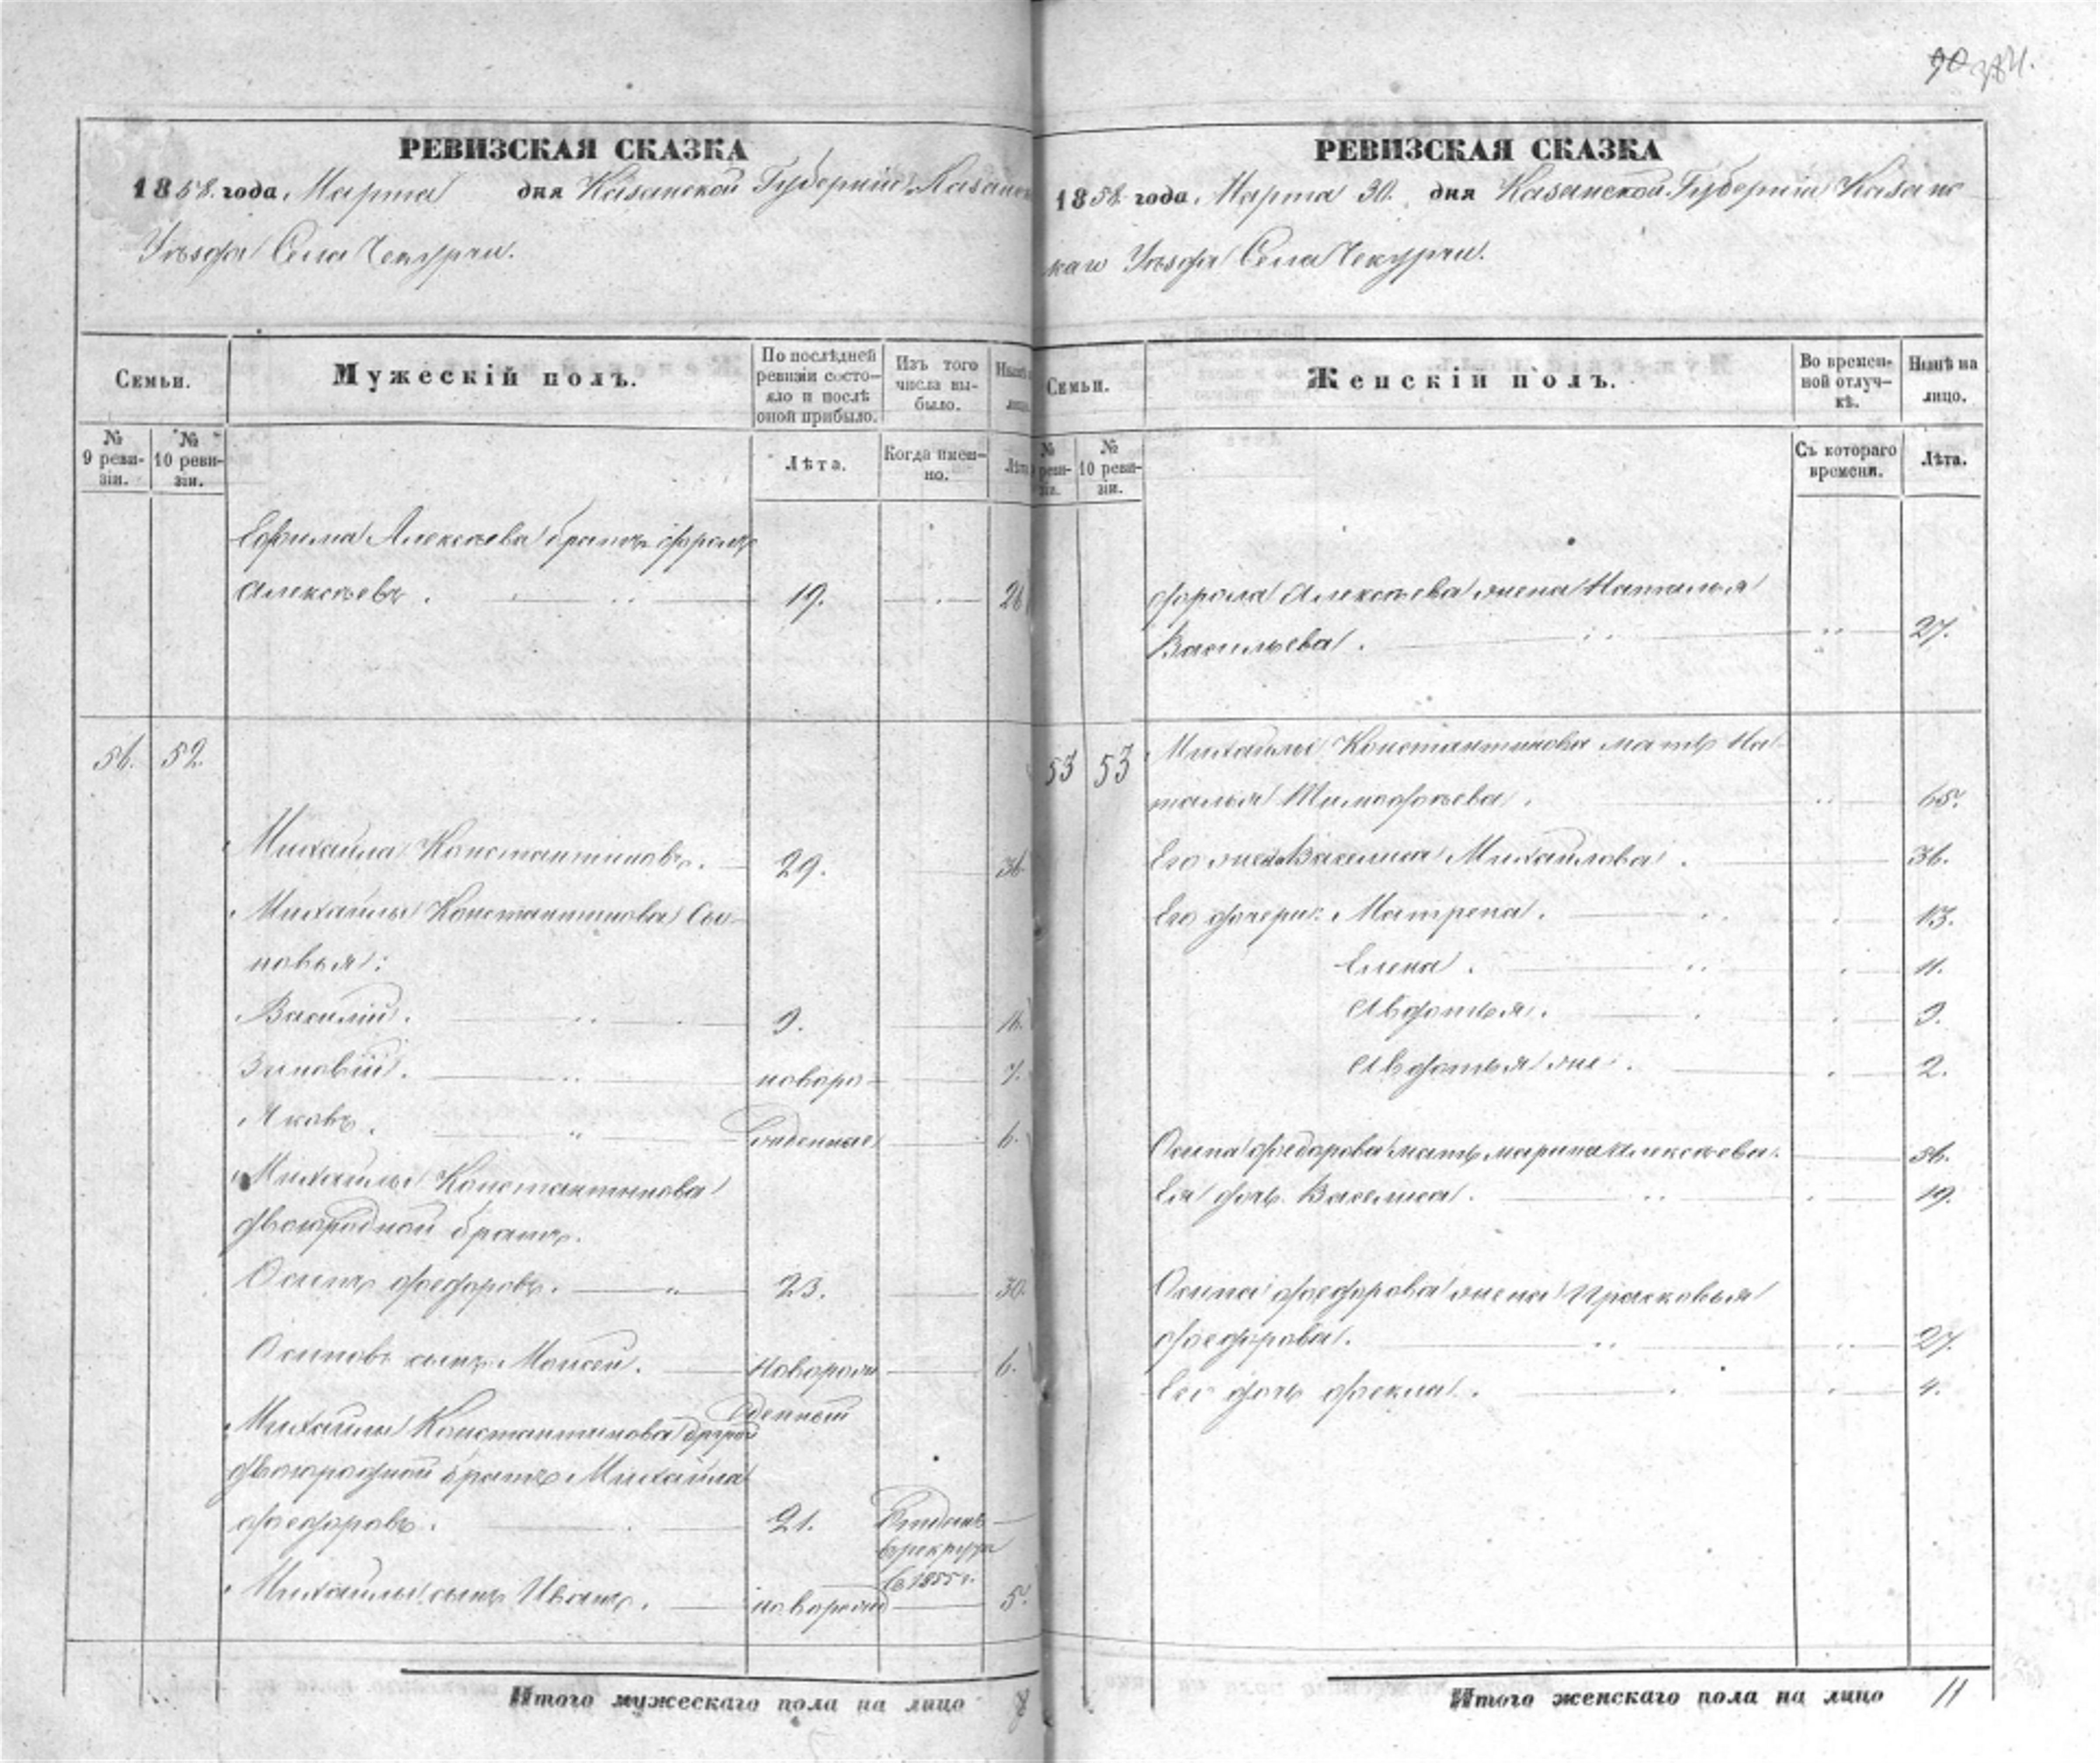 90 384.
РЕВИЗСКАЯ СКАЗКА
1858. года Марта дня Казанской Губерніи Казанск
Уѣзда Села Чекурчи.
Семьи.
Мужескій полъ.
По послѣдней
ревизіи состо-
яло и послѣ
оной прибыло.
Изъ того
числа вы-
было.
Нынѣ
лицо.
№
9 реви-
зіи.
№
10 реви-
зіи.
Лѣта.
Когда имен-
но.
Лѣта
Ефима Алексѣева братъ Фролъ
Алексѣевъ. 19. 26
56. 52.
Михайла Константиновъ. 29. 36
Михайлы Константинова Сы-
новья:
Василій. 9. 16.
Зиновій. новоро- 7.
Яковъ. жденные 6.
Михайлы Константинова
двоюродной братъ.
Осипъ Федоровъ. 23. 30.
Осиповъ сынъ Моисей. новорож 6.
денный
Михайлы Константинова другой
двоюродной братъ Михайла
Федоровъ. 21. Отданъ
в рекруты
в 1855 г.
Михайлы сынъ Иванъ. новорожд 5.
Итого мужескаго пола на лицо 8
РЕВИЗСКАЯ СКАЗКА
1858 года Марта 30. дня Казанской Губерніи Казанс
каго Уѣзда Села Чекурчи.
Семьи.
Женскій полъ.
Во времен-
ной отлуч-
кѣ.
Нынѣ на
лицо.
№
реви-
зіи.
№
10 реви-
зіи.
Съ котораго
времени.
Лѣта.
Фрола Алексѣева жена Наталья
Васильева. 27.
53 53 Михайлы Константинова мать На-
талья Тимофѣева. 65.
Его жена Васелиса Михайлова. 36.
Его дочери: Матрена. 13.
Елена. 11.
Авдотья. 9.
Авдотья же. 2.
Осипа Федорова мать Марина Алексѣева. 56.
Ея дочь Васелиса. 19.
Осипа Федорова жена Прасковья
Федорова. 27.
Его дочь Фекла. 4.
Итого женскаго пола на лицо 11